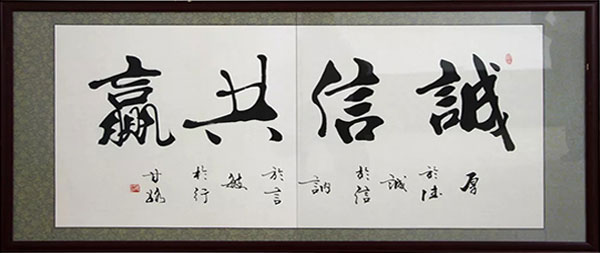 誠信共贏
厚於德誠於信訥於言敏於行